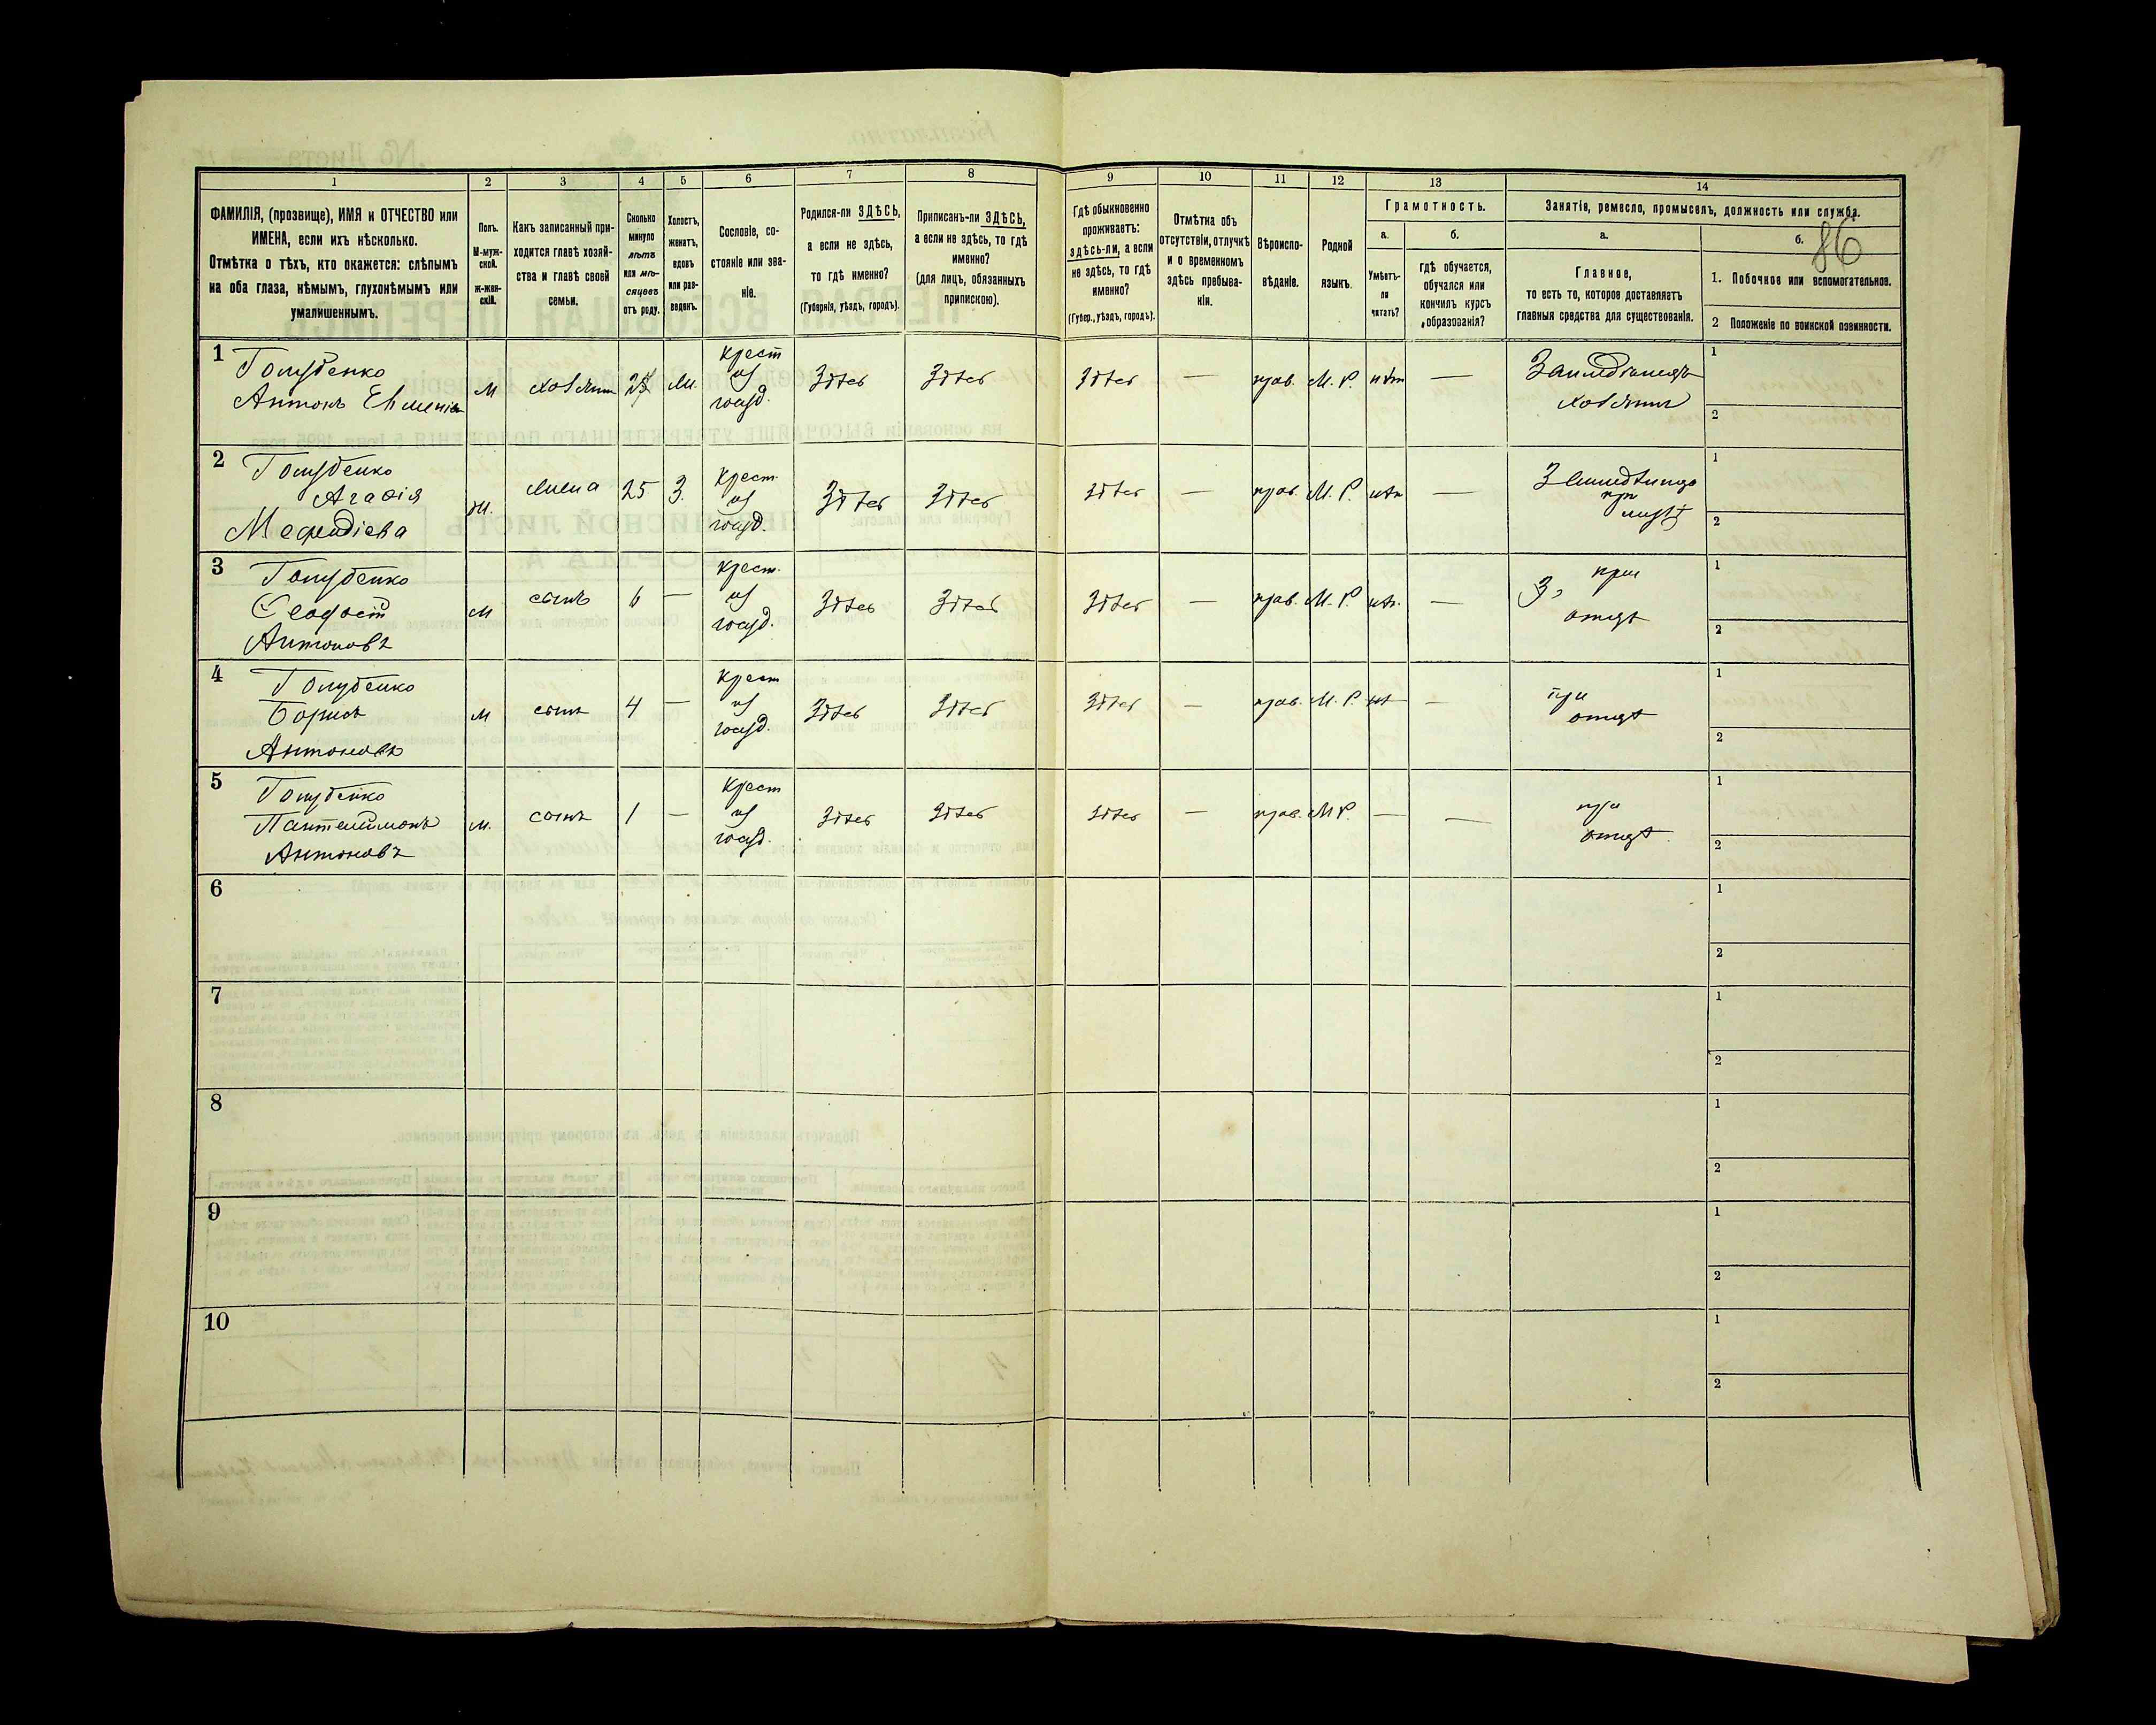 1 2 3 4 5 6 7 8 9 10 11 12 13 14
ФАМИЛІЯ, (прозвище), ИМЯ и ОТЧЕСТВО или
ИМЕНА, если ихъ нѣсколько.
Отмѣтка о тѣхъ, кто окажется: слѣпымъ
на оба глаза, нѣмымъ, глухонѣмымъ или
умалишеннымъ.
Полъ.
М-муж-
ской.
ж-жен-
скій.
Какъ записанный при-
ходится главѣ хозяй-
ства и главѣ своей
семьи.
Сколько
минуло
лѣтъ
или мѣ-
сяцевъ
отъ роду.
Холостъ,
женатъ,
вдовъ
или раз-
веденъ.
Сословіе, со-
стояніе или зва-
ніе.
Родился-ли ЗДѢСЬ,
а если не здѣсь,
то гдѣ именно?
(Губернія, уѣздъ, городъ).
Приписанъ-ли ЗДѢСЬ,
а если не здѣсь, то гдѣ
именно?
(для лицъ, обязанныхъ
припискою).
Гдѣ обыкновенно
проживаетъ:
здѣсь-ли, а если
не здѣсь, то гдѣ
именно?
(Губер., уѣздъ, городъ).
Отмѣтка объ
отсутствіи, отлучкѣ
и о временномъ
здѣсь пребыва-
ніи.
Вѣроиспо-
вѣданіе.
Родной
языкъ.
Грамотность.
а.
Умѣетъ-
ли
читать?
б.
гдѣ обучается,
обучался или
кончилъ курсъ
образованія?
Занятіе, ремесло, промыселъ, должность или служба.
а.
Главное,
то есть то, которое доставляетъ
главныя средства для существованія.
б.
86
1. Побочное или вспомогательное.
2 Положеніе по воинской повинности.
1
Голубенко
Антонъ
М
М.
Крест
из
госуд.
Здѣсь Здѣсь Здѣсь — прав. М. Р. нѣт —
Хозяин
1
2
2
Голубенко
Агафія
Ж.
жена 25 З.
Крест.
из
госуд.
Здѣсь Здѣсь Здѣсь — прав. М. Р. нѣт —
при
мужѣ
1
2
3
Голубенко
Антоновъ
М сынъ 6 —
Крест.
из
госуд.
Здѣсь Здѣсь Здѣсь — прав. М. Р. нѣт. —
З, при
отцѣ
1
2
4
Голубенко
Борисъ
Антоновъ
М сынъ 4 —
Крест
из
госуд.
Здѣсь Здѣсь Здѣсь — прав. М. Р. нѣт —
при
отцѣ
1
2
5
Голубенко
Пантелимонъ
Антоновъ
М. сынъ 1 —
Крест
из
госуд.
Здѣсь Здѣсь Здѣсь — прав. М Р. — —
при
отцѣ.
1
2
6
1
2
7
1
2
8
1
2
9
1
2
10
1
2